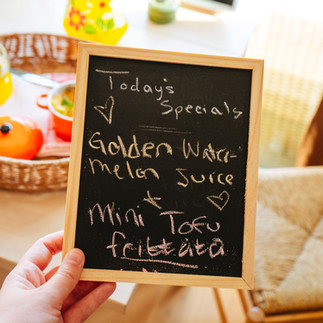 Today's
Specials
Golden Water-
melon Juice
Mini Tofu
frittata